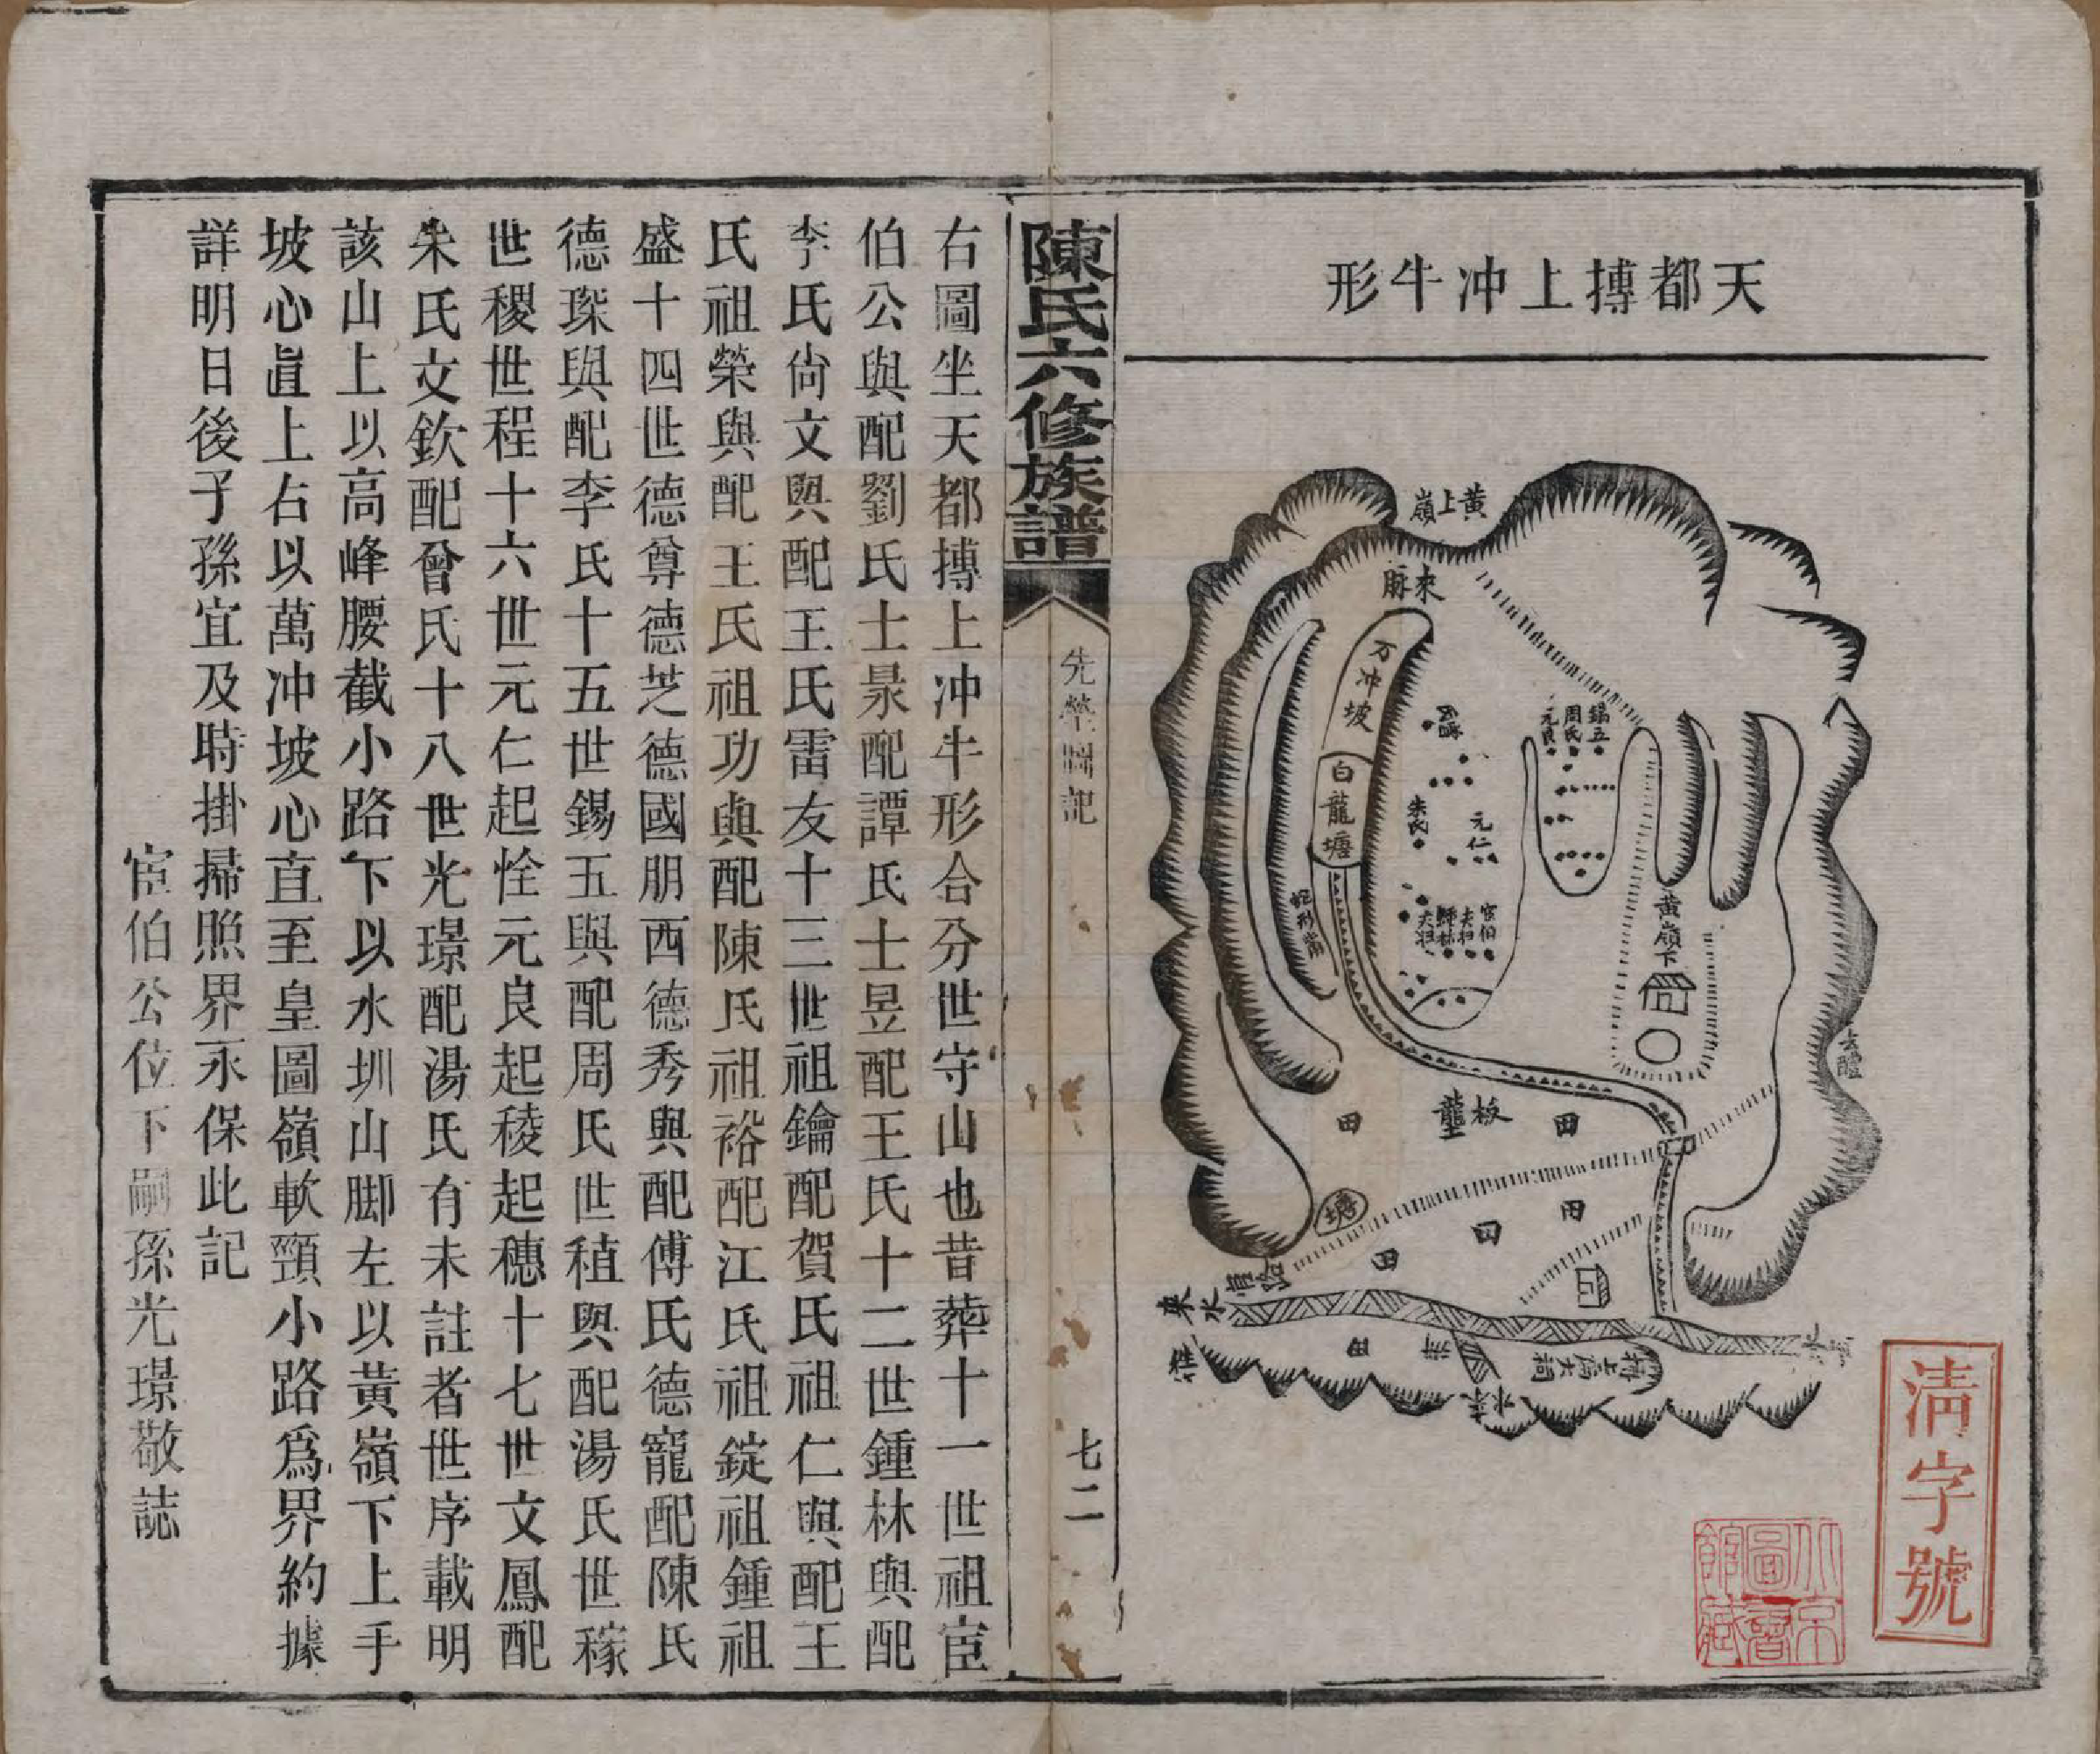 天都摶上冲牛形
黄上嶺
來脈
万冲坡
白龍塘
錫五
周氏
元良
朱氏
元仁
宦伯
夫祖
鍾林
夫祖
蛇形嘴
黄嶺下
去醴
板壟
田
田
塘
田
田
田
路
水來
田
水去
清字號
北京圖書館藏
陳氏六修族譜
先塋圖記
七二
右圖坐天都摶上冲牛形合分世守山也昔葬十一世祖宦
伯公與配劉氏士景配譚氏士昱配王氏十二世鍾林與配
李氏尙文與配王氏雷友十三世祖鑰配賀氏祖仁與配王
氏祖榮與配王氏祖功與配陳氏祖裕配江氏祖錠祖鍾祖
盛十四世德尊德芝德國朋西德秀與配傅氏德寵配陳氏
德琛與配李氏十五世錫五與配周氏世稙與配湯氏世稼
世稷世程十六世元仁起恮元良起稜起穗十七世文鳳配
朱氏文欽配曾氏十八世光璟配湯氏有未註者世序載明
該山上以高峰腰截小路下以水圳山脚左以黃嶺下上手
坡心直上右以萬冲坡心直至皇圖嶺軟頸小路爲界約據
詳明日後子孫宜及時掛掃照界永保此記
宦伯公位下嗣孫光璟敬誌